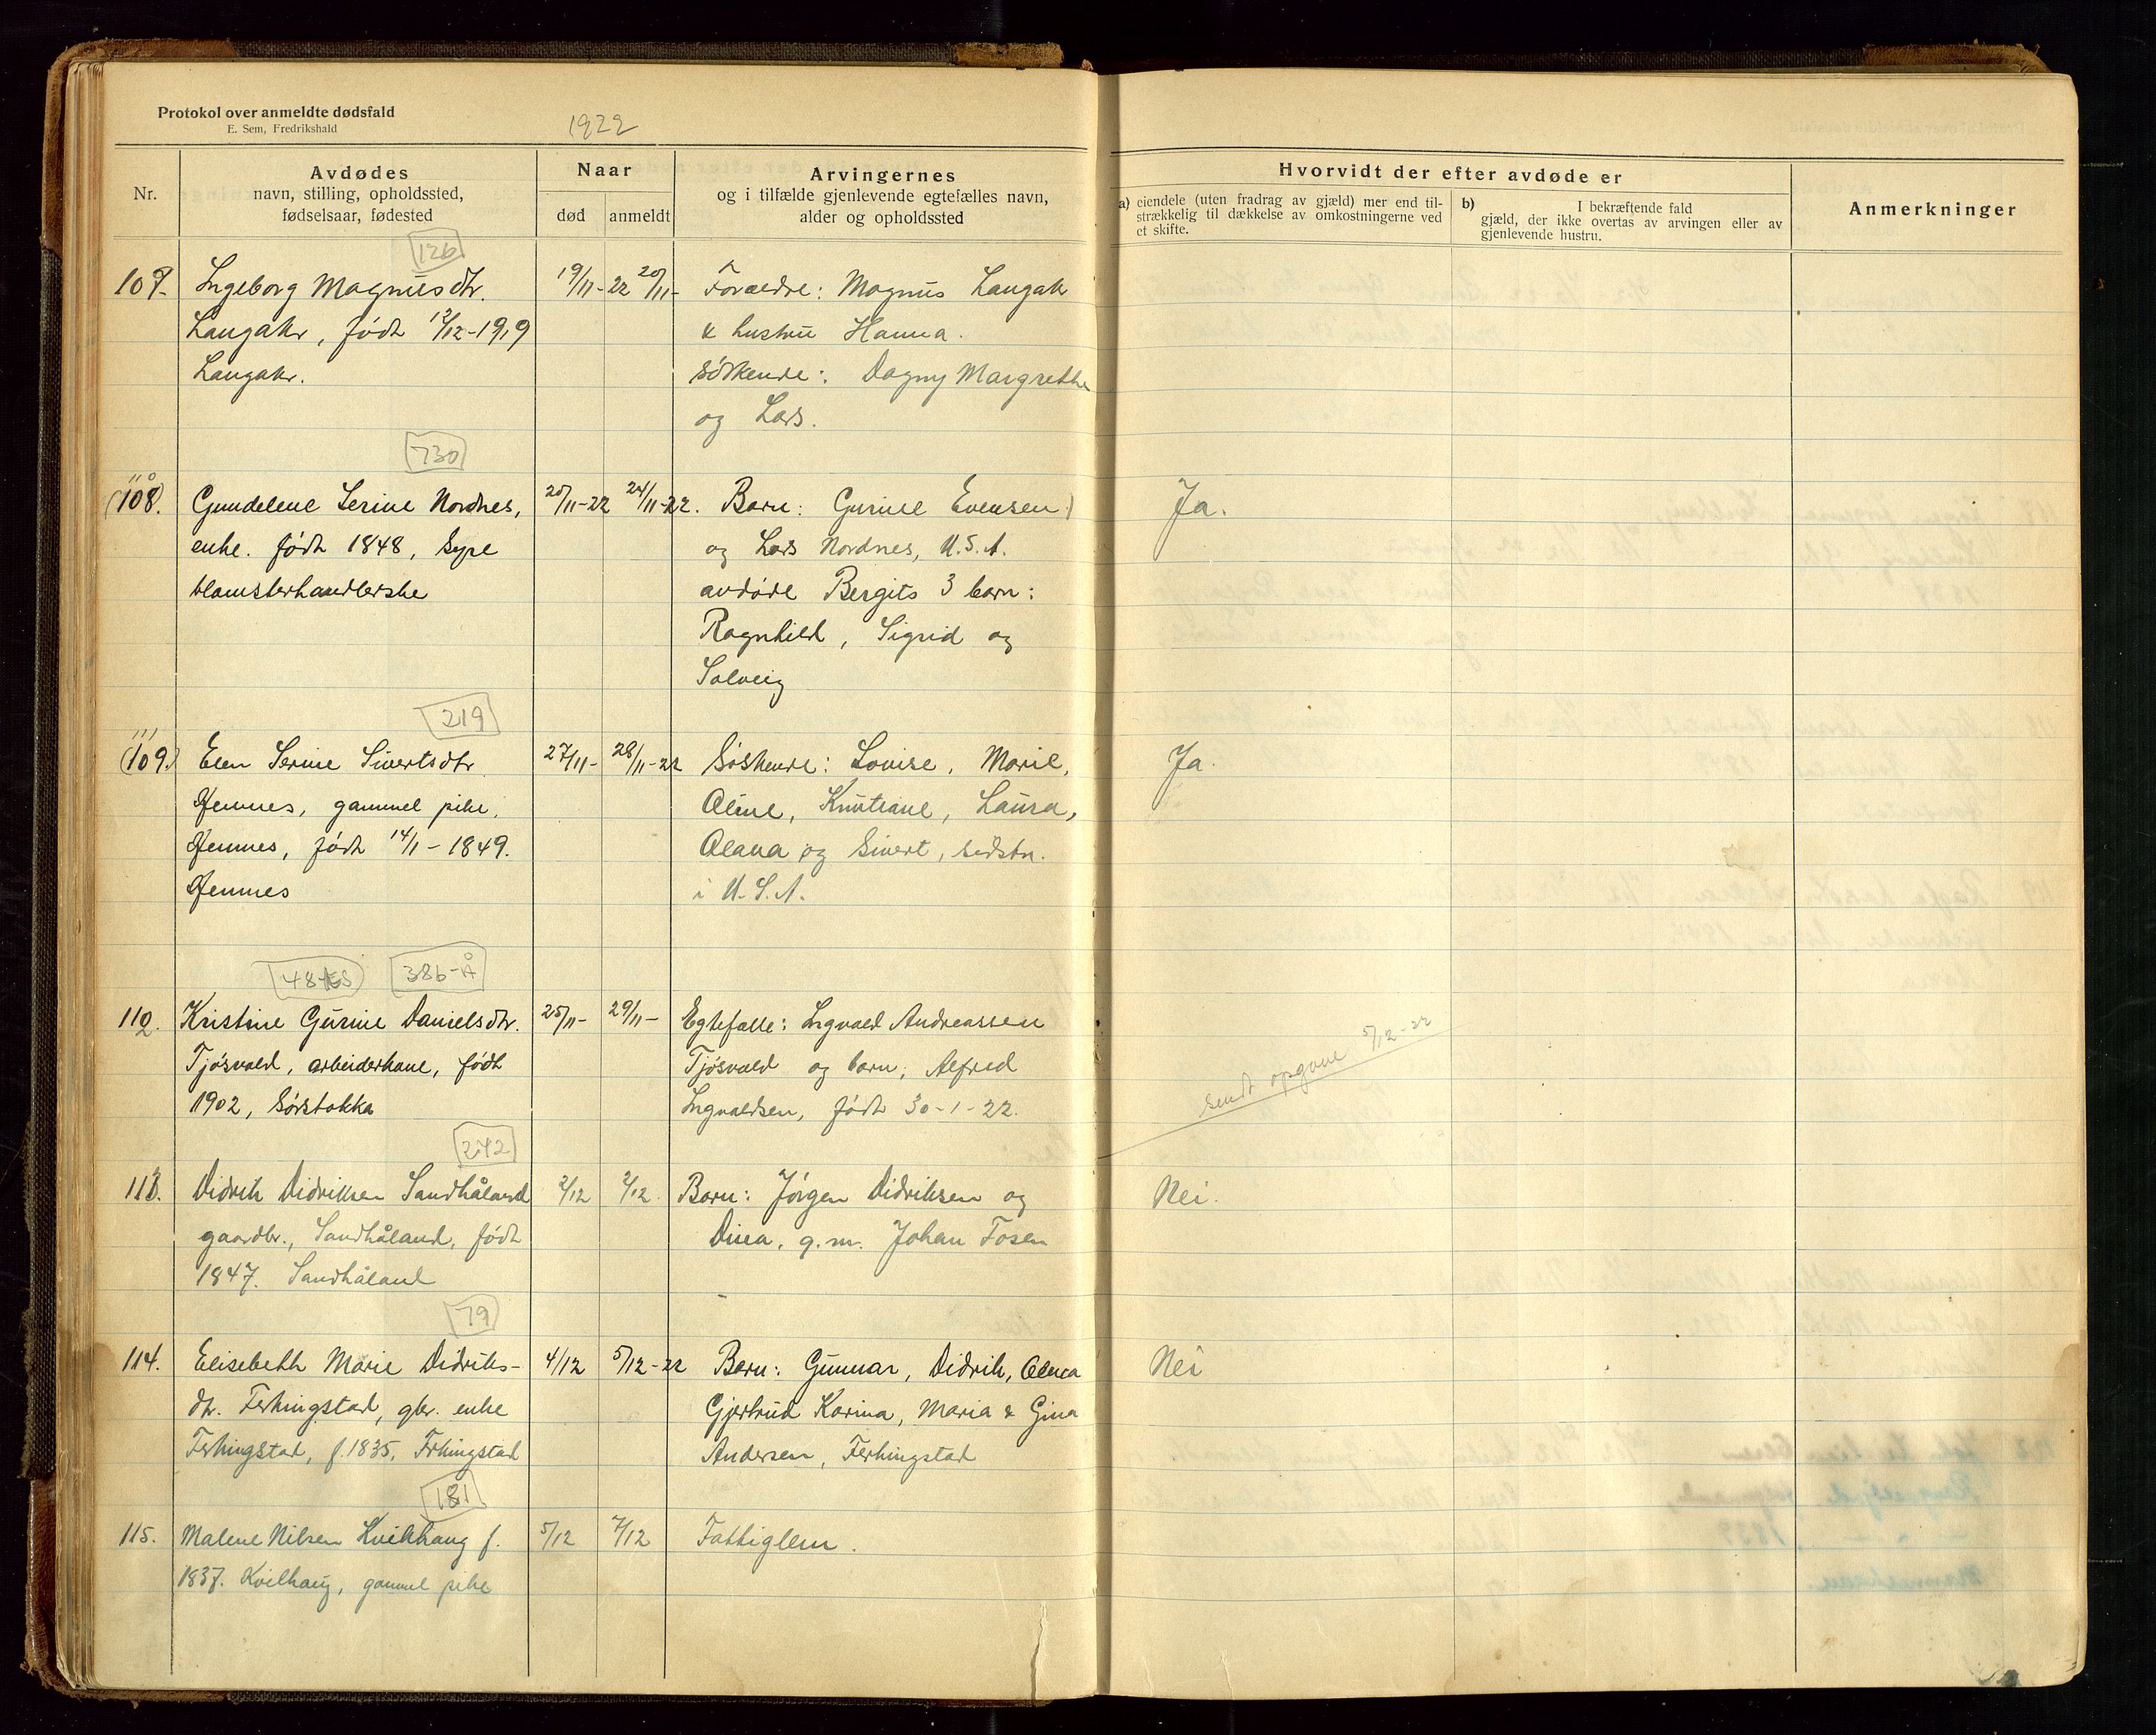 Protokol over anmeldte dødsfald
E. Sem, Fredrikshald
1922
Nr.
Avdødes
navn, stilling, opholdssted,
fødselsaar, fødested
Naar
død
anmeldt
Arvingernes
og i tilfælde gjenlevende egtefælles navn,
alder og opholdssted
Hvorvidt der efter avdøde er
a) eiendele (uten fradrag av gjæld) mer end til-
strækkelig til dækkelse av omkostningerne ved
et skifte.
b) I bekræftende fald
gjæld, der ikke overtas av arvingen eller av
gjenlevende hustru.
Anmerkninger
126
Ingeborg Magnusdtr. 19/11-22 20/11- Forældre: Magnus Langaker
Langaker, født 12/12-1919 & hustru Hanna.
Langaker. Søskende: Dagny Margrethe
og Lars.
730
110
(108. Gundelene Serine Nordnes, 20/11-22 24/11-22. Barn: Gurine Evensen
enke. født 1848, Syre og Lars Nordnes, U.S.A.
blomsterhandlerske avdøde Bergits 3 barn:
Ragnhild, Sigrid og
Solveig
219
111
(109.) Elen Serine Sivertsdtr 27/11- 28/11-22 Søskende: Lovise, Marie,
gammel pike, Oline, Knutiane, Laura,
født 14/1-1849. Olava og Sivert, sidstn.
i U.S.A.
386-Å
112. Kristine Gurine Danielsdtr. 25/11- 29/11- Egtefælle: Ingvald Andreassen
Tjøsvold, arbeiderkone, født Tjøsvold og barn, Alfred
1902, Sørstokka Ingvaldsen, født 30-1-22.
sendt opgave 5/12-22
242
113. Didrik Didriksen Sandhåland 2/12 2/12. Barn: Jørgen Didriksen og Nei.
gaardbr., Sandhåland, født Dina, g.m. Johan Tosen
1847. Sandhåland
79
114. Elisebeth Marie Didriks- 4/12 5/12-22 Barn: Gunnar, Didrik, Nei
dtr. Ferkingstad, gbr. enke Gjertrud Karina, Maria & Gina
Ferkingstad, f. 1835, Ferkingstad Andersen, Ferkingstad
181
115. Malene Nilsen Kvilhaug f. 5/12 7/12 Fattiglem.
1837. Kvilhaug, gammel pike
Ja.
Ja.